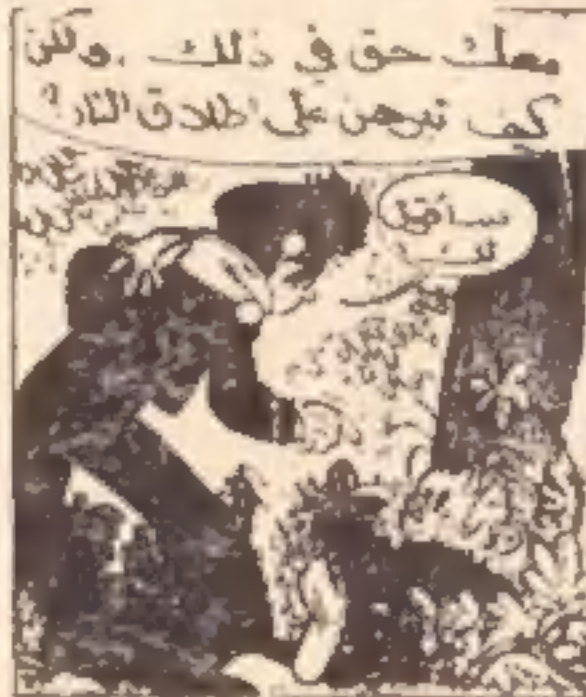 معك حق في ذلك ، ولكن
كيف نبرهن على اطلاق النار؟
سأقول
لك